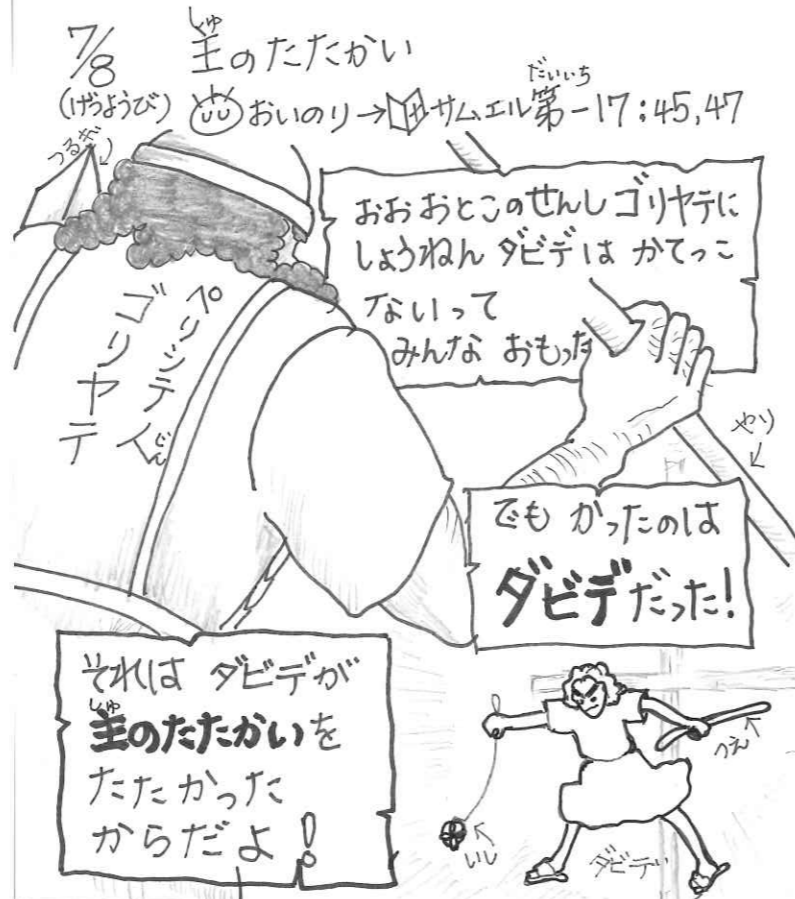 7/8 主のたたかい
しゅ
(げつようび) おいのり→サムエル第一17:45,47
だいいち
つるぎ
おおおとこのせんしゴリヤテに
しょうねん ダビデは かてっこ
ないって
みんな おもった
ペリシテ人
じん
ゴリヤテ
やり
でも かったのは
ダビデだった!
それは ダビデが
主のたたかいを
しゅ
たたかった
からだよ!
つえ
いし
ダビデ